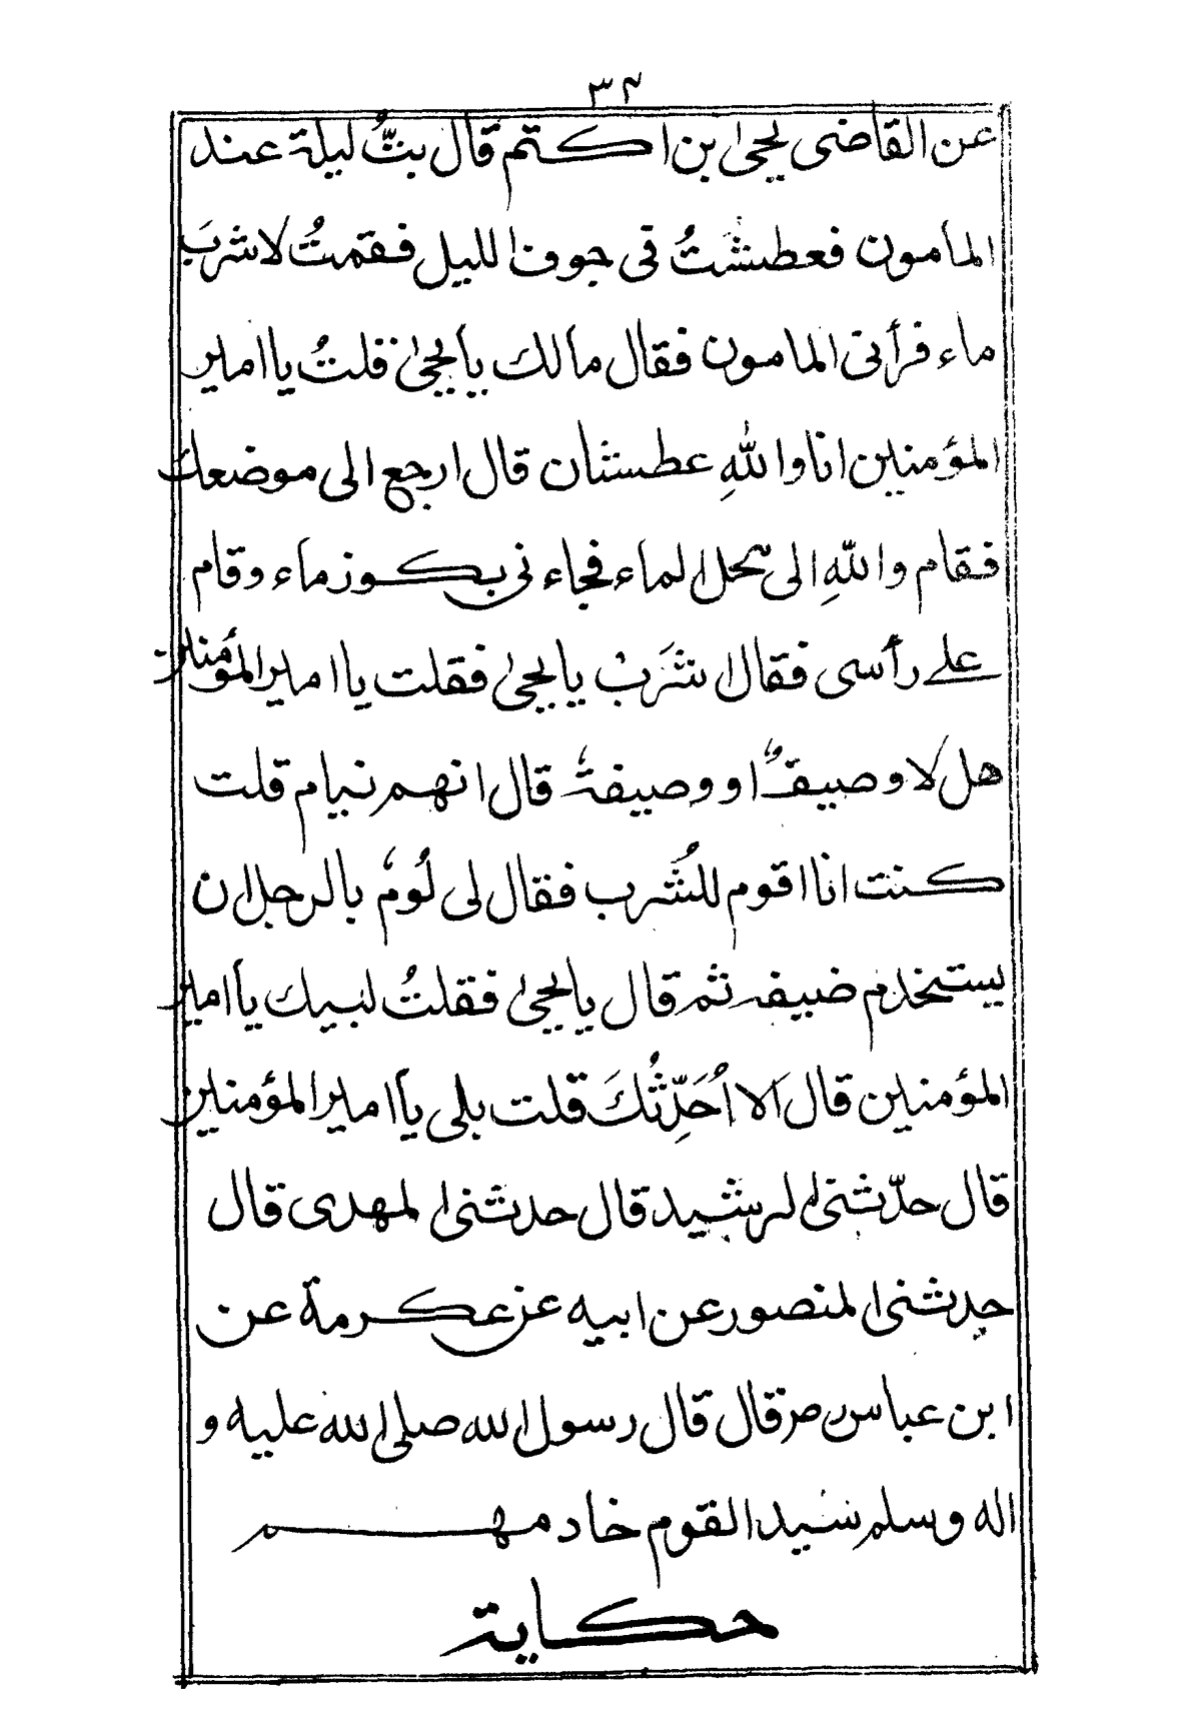 ٣٤
عن القاضى يحيى بن اكتم قال بتُّ ليلة عند
المامون فعطشتُ فى جوف الليل فقمتُ لاشربَ
ماء فرأنى المامون فقال مالك يا يحيىٰ قلتُ يا امير
المؤمنين انا واللهِ عطشان قال ارجع الى موضعك
فقام واللّهِ الى محل الماء فجاءنى بكوز ماء وقام
علے رأسى فقال اشرَبْ يا يحيىٰ فقلت يا امير المؤمنين
هل لا وصيفٌ او وصيفةٌ قال انهم نيام قلت
كنت انا اقوم للشُرب فقال لى لُومٌ بالرجل ان
يستخدم ضيفه ثم قال يا يحيىٰ فقلتُ لبيك يا امير
المؤمنين قال اَلا اُحَدِّثُكَ قلت بلى يا امير المؤمنين
قال حدّثنى الرشيد قال حدثنى المهدى قال
حدثنى المنصور عن ابيه عن عكرمة عن
ابن عباس رض قال قال رسول الله صلى الله عليه و
اله وسلم سيد القوم خادمهم
حكاية